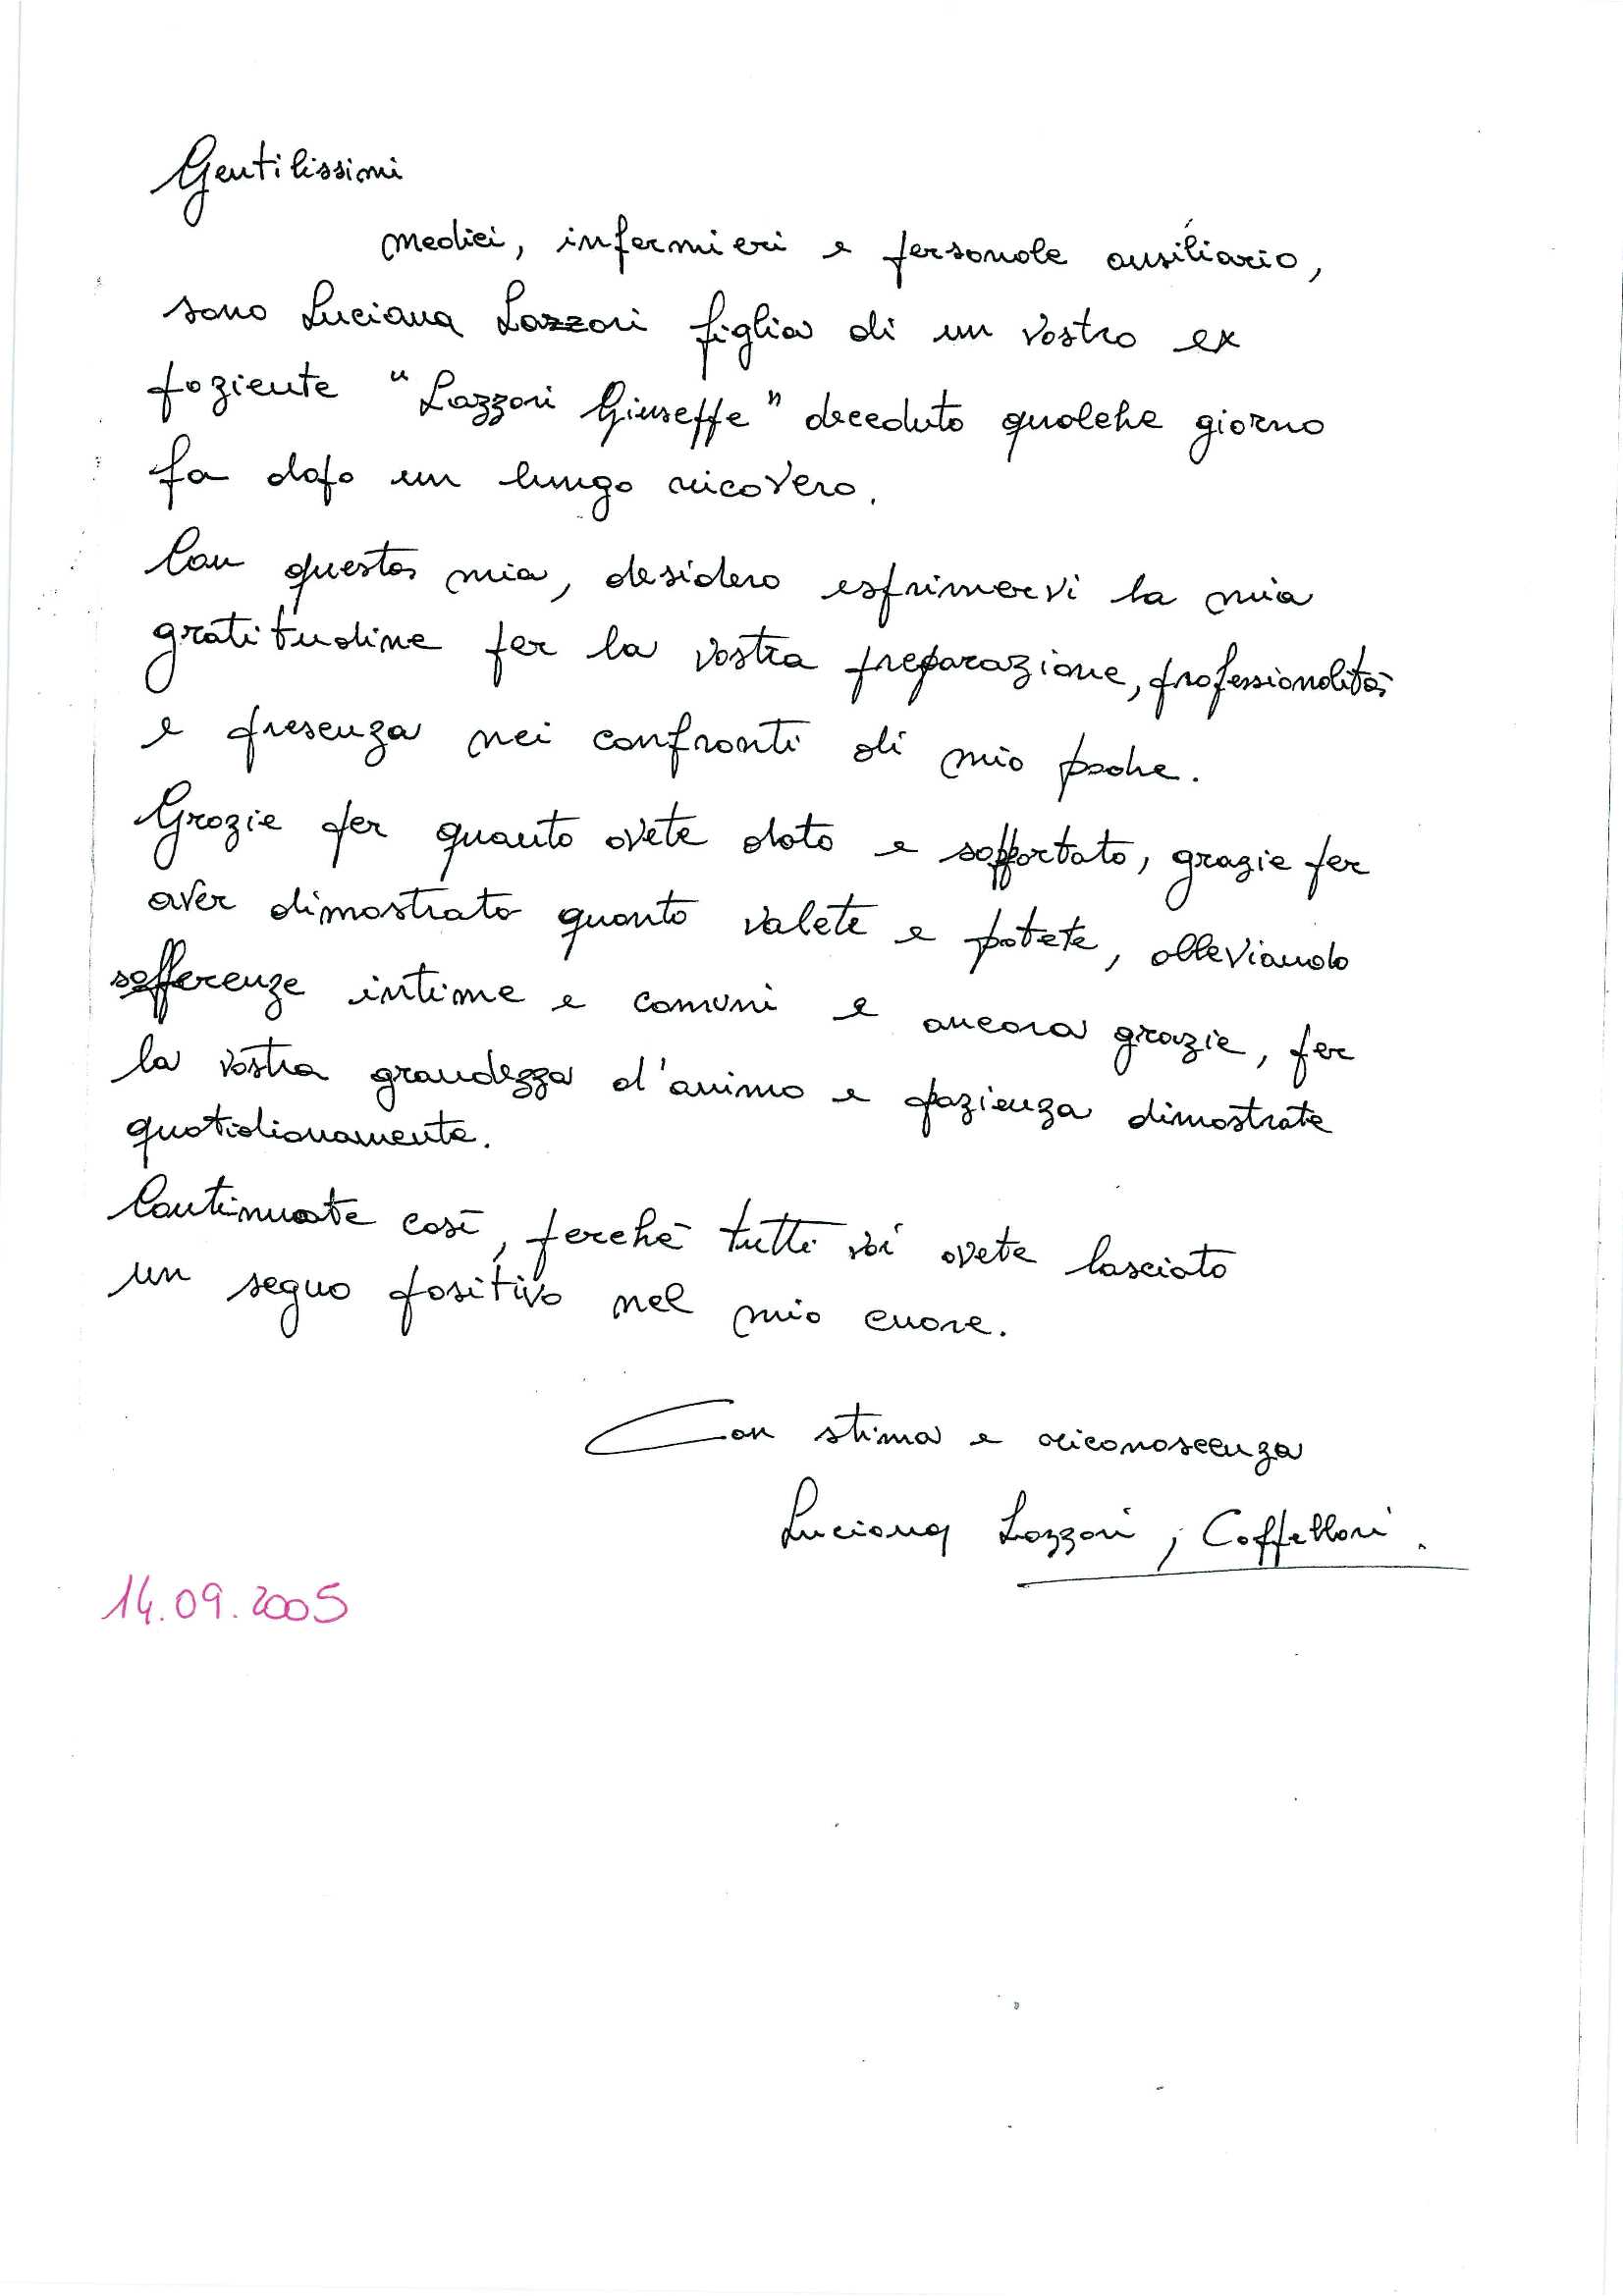 Gentilissimi
medici, infermieri e personale ausiliario,
sono Luciana Lazzari figlia di un vostro ex
paziente "Lazzari Giuseppe" deceduto qualche giorno
fa dopo un lungo ricovero.
Con questa mia, desidero esprimervi la mia
gratitudine per la vostra preparazione, professionalità
e presenza nei confronti di mio padre.
Grazie per quanto avete dato e sopportato, grazie per
aver dimostrato quanto valete e potete, alleviando
sofferenze intime e comuni e ancora grazie, per
la vostra grandezza d'animo e pazienza dimostrate
quotidianamente.
Continuate così, perchè tutti voi avete lasciato
un segno positivo nel mio cuore.
Con stima e riconoscenza
Luciana Lazzari, Coffellari.
14.09.2005